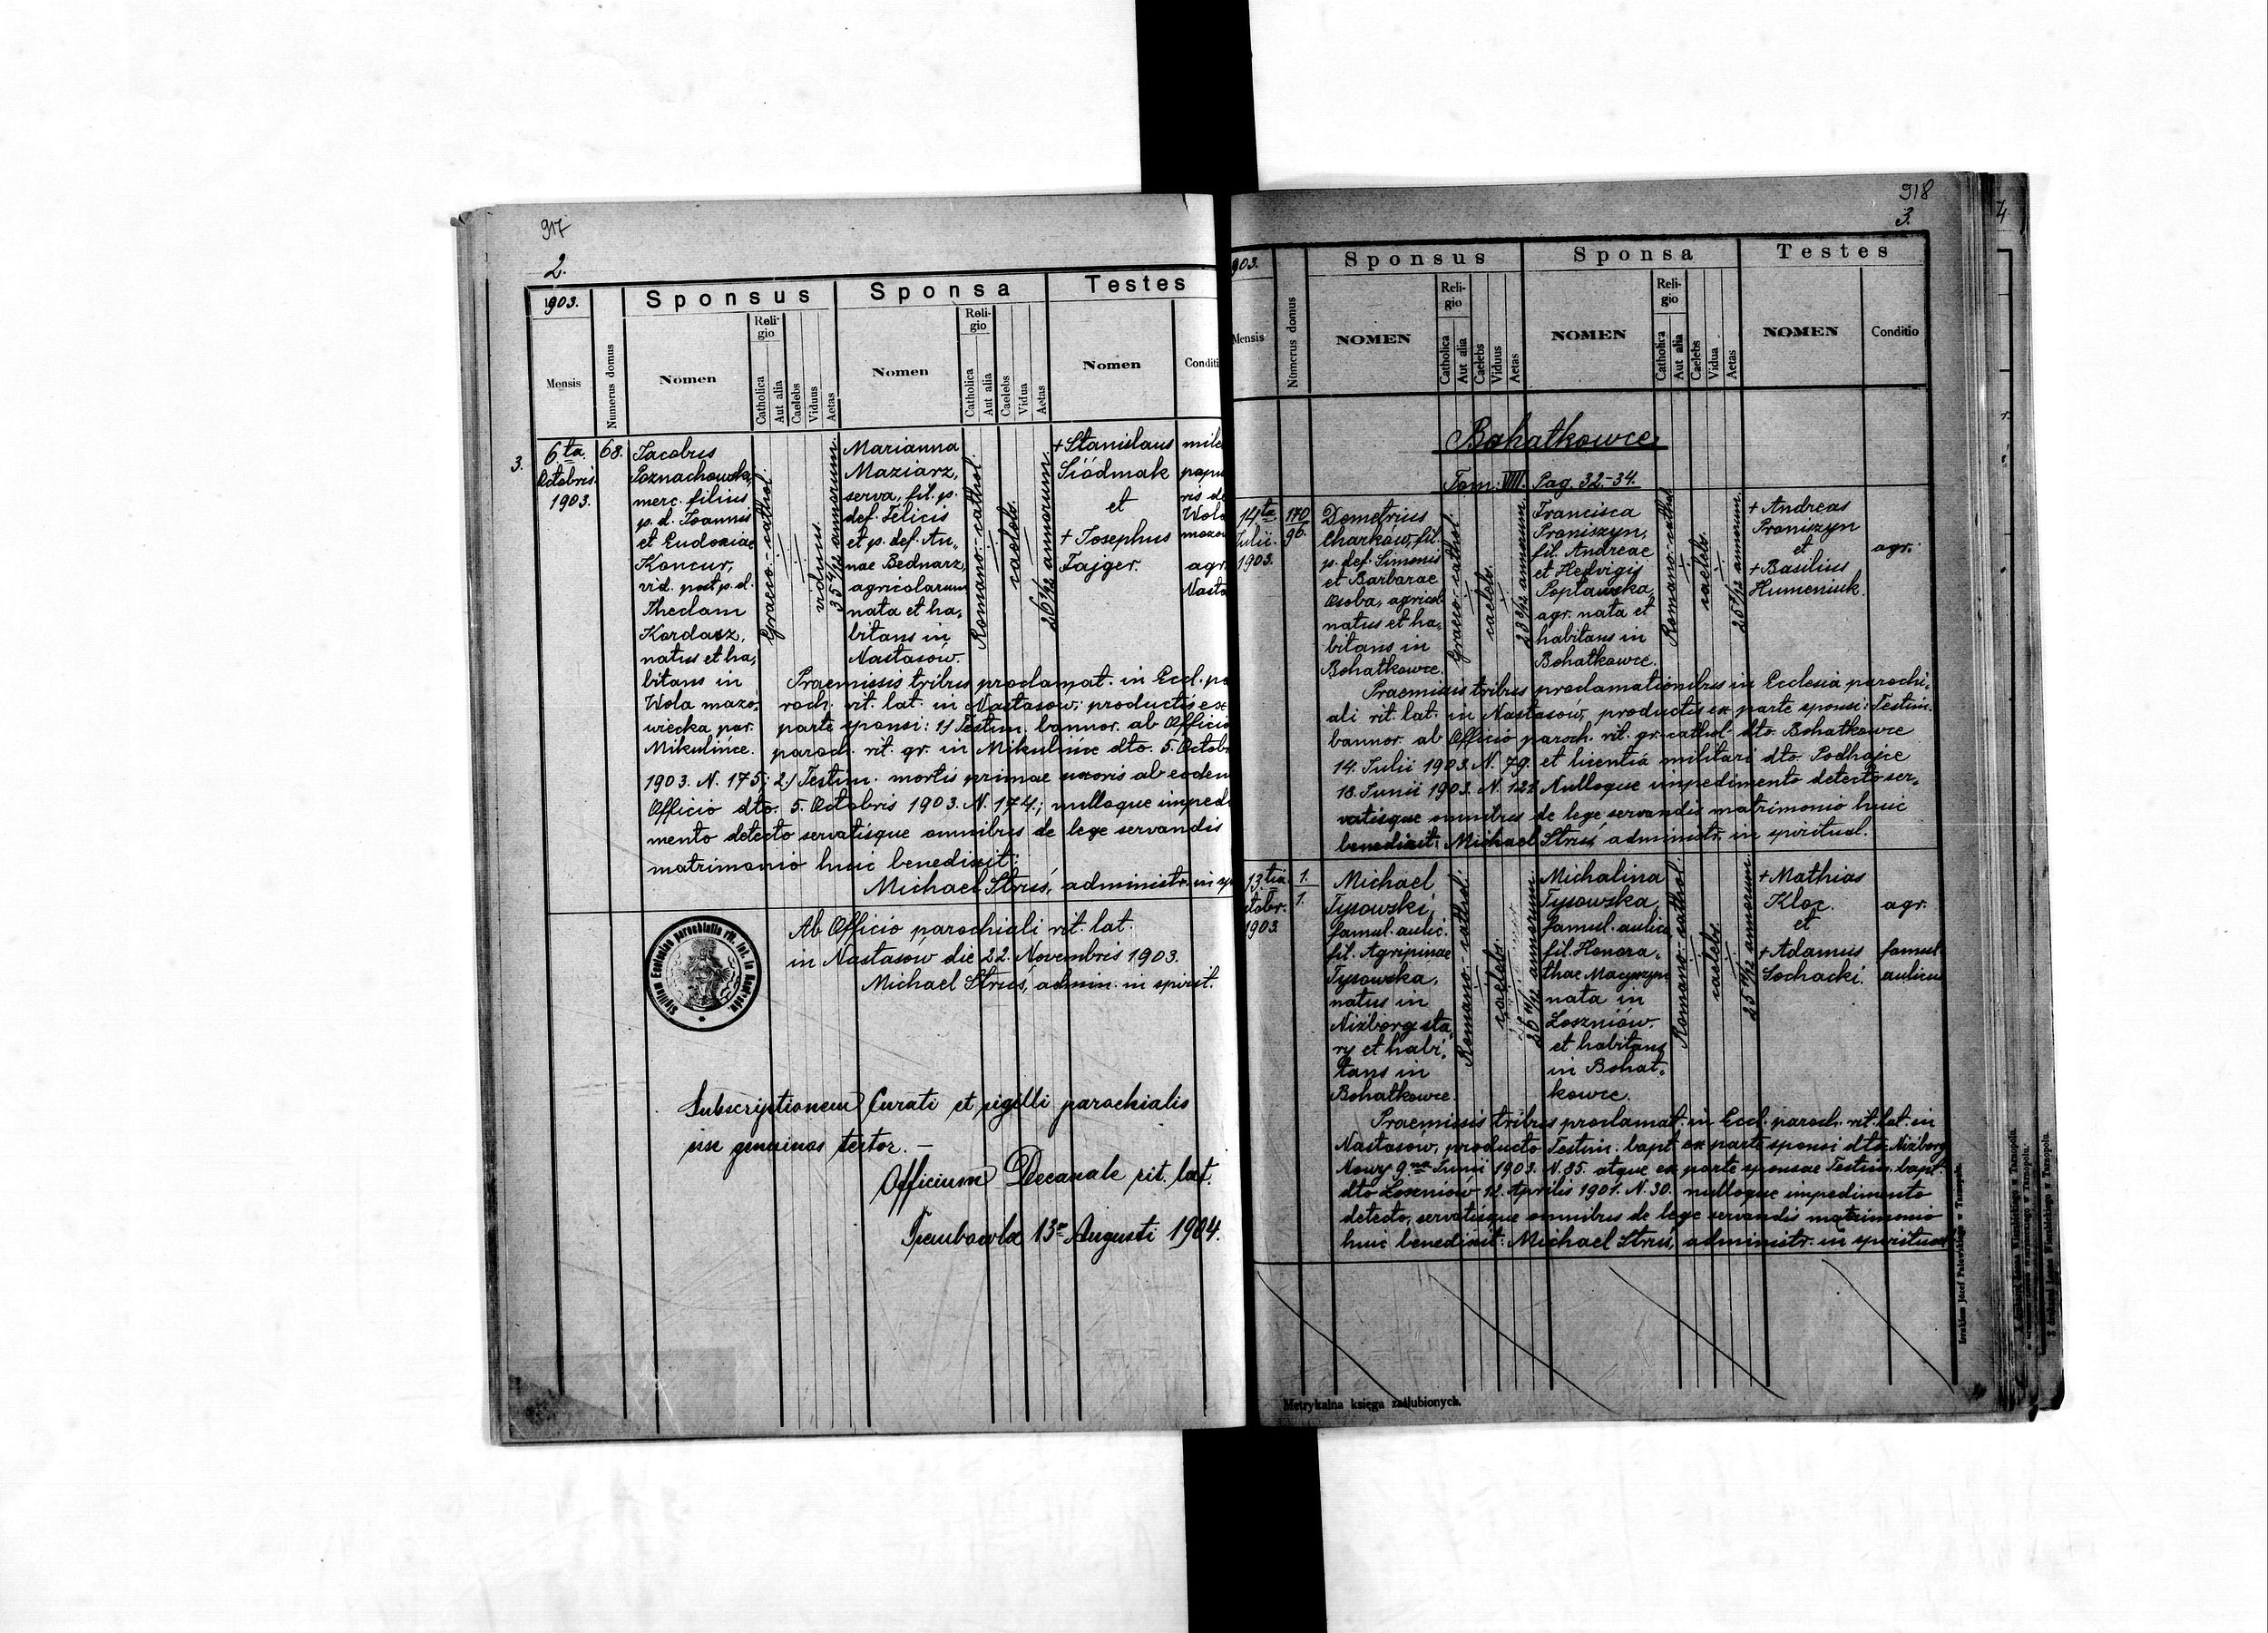 917
2.
1903.
Sponsus
Sponsa
Testes
Mensis
Numerus domus
Nomen
Religio
Catholica
Aut alia
Caelebs
Viduus
Aetas
Nomen
Religio
Catholica
Aut alia
Caelebs
Vidua
Aetas
Nomen
Conditi
3.
6ta
Octobris
1903.
68.
Jacobus
Poznachowski,
merc. filius
p. d. Joannis
et Eudoxiae
Koncur,
vid. post p. d.
Theclam
Kordasz,
natus et ha,
bitans in
Wola mazo,
wiecka par.
Mikulińce.
Graeco-cathol.
viduus.
35 4/12 annorum.
Marianna
Maziarz,
serva, fil. p.
def. Felicis
et p. def. An,,
nae Bednarz,
agricolarum
nata et ha,
bitans in
Nastasów.
Romano-cathol.
caelebs.
annorum.
+ Stanislaus
Siódmak
et
+ Josephus
Fajger.
mile
popu
ris de
Wola
mazo
agr.
Nasta
Praemissis tribus proclamat. in Eccl. pa
roch. rit. lat. in Nastasów; productis ex
parte sponsi: 1) Testim. bannor. ab Officio
paroch. rit. gr. in Mikulińce dto. 5. Octob
1903. N. 175; 2) Testim. mortis primae uxoris ab eodem
Officio dto. 5. Octobris 1903. N. 174.; nulloque impedi
mento detecto servatisque omnibus de lege servandis
matrimonio huic benedixit:
Michael Struś, administr. in sp
Ab Officio parochiali rit. lat.
in Nastasów die 22. Novembris 1903.
Michael Struś, admin. in spirit.
Sigillum Ecclesiae parochialis rit. lat. in Nastasów.
Subscriptionem Curati et sigilli parochialis
esse genuinas testor. —
Officium Decanale rit. lat.
Trembowla 13e Augusti 1904.
918
3.
903.
Sponsus
Sponsa
Testes
Mensis
Numerus domus
NOMEN
Religio
Catholica
Aut alia
Caelebs
Viduus
Aetas
NOMEN
Religio
Catholica
Aut alia
Caelebs
Vidua
Aetas
NOMEN
Conditio
Bohatkowce.
Tom: VIII. Pag. 32-34.
14ta
Julii.
1903.
170
96.
Demetrius
Charków, fil.
p. def. Simonis
et Barbarae
Osoba, agricol
natus et ha,
bitans in
Bohatkowce.
Graeco-cathol.
caelebs.
annorum.
Francisca
Proniszyn,
fil. Andreae
et Hedvigis
Popławska,
agr. nata et
habitans in
Bohatkowce.
Romano-cathol
caelebs.
annorum.
+ Andreas
Proniszyn
et
+ Basilius
Humeniuk.
agr.
Praemissis tribus proclamationibus in Ecclesia parochi,
ali rit. lat. in Nastasów, productis ex parte sponsi: Testim.
bannor. ab Officio paroch. rit. gr.-cathol. dto. Bohatkowce
14. Julii 1903. N. 79. et licentiâ militari dto. Podhajce
18. Junii 1903. N. 122. Nulloque impedimento detecto ser,
vatisque omnibus de lege servandis matrimonio huic
benedixit: Michael Struś, administr. in spiritual.
13.tia
ctobr.
1903
1.
1.
Michael
Tysowski,
famul. aulic.
fil. Agripinae
Tysowska,
natus in
Niżborg sta,
ry et habi,
tans in
Bohatkowce.
Romano-cathol.
caelebs.
annorum.
Michalina
Tysowska,
famul. aulica
fil. Honora,
thae Macyszyn
nata in
Łoszniów.
et habitans
in Bohat,
kowce.
Romano-cathol.
caelebs.
annorum.
+ Mathias
Kloc.
et
+ Adamus
Sochacki.
agr.
famul.
aulicu
Praemissis tribus proclamat. in Eccl. paroch. rit. lat. in
Nastasów, producto Testim. bapt. ex parte sponsi dto. Niżborg
Nowy 9na Junii 1903. N. 85. atque ex parte sponsae Testim. bapt.
dto Łoszniów 12. Aprilis 1901. N. 30. nulloque impedimento
detecto, servatisque omnibus de lege servandis matrimonio
huic benedixit: Michael Struś, administr. in spiritual
Metrykalna księga zaślubionych.
Drukiem Józef Pawłowskiego w Tarnopolu.